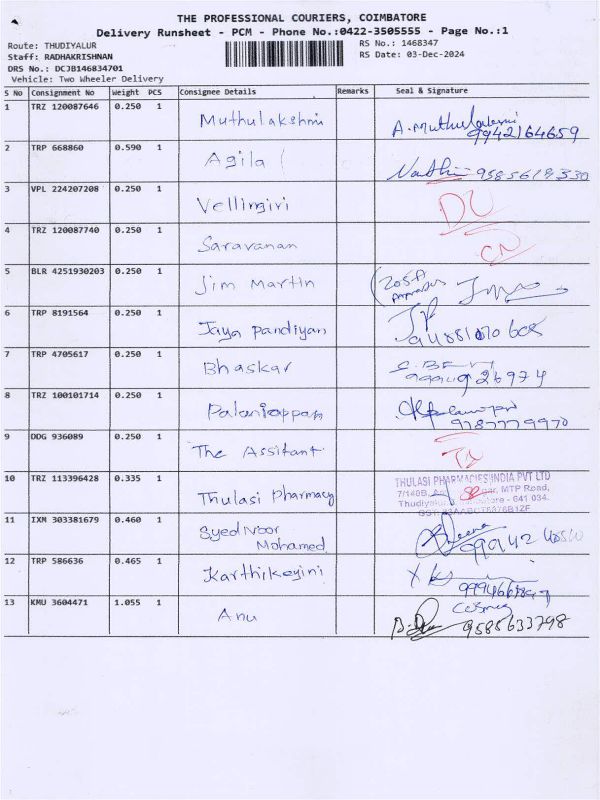 THE PROFESSIONAL COURIERS, COIMBATORE
Delivery Runsheet - PCM - Phone No.:0422-3505555 - Page No.:1
Route: THUDIYALUR
Staff: RADHAKRISHNAN
DRS No.: DCJB146834701
Vehicle: Two Wheeler Delivery
RS No.: 1468347
RS Date: 03-Dec-2024
S No Consignment No Weight PCS Consignee Details Remarks Seal & Signature
1 TRZ 120087646 0.250 1 Muthulakshmi A. Muthulakshmi 9942164659
2 TRP 668860 0.590 1 Agila
3 VPL 224207208 0.250 1 Vellingiri DL
4 TRZ 120087740 0.250 1 Saravanan CN
5 BLR 4251930203 0.250 1 Jim Martin
6 TRP 8191564 0.250 1 Jaya Pandiyan
7 TRP 4705617 0.250 1 Bhaskar
8 TRZ 100101714 0.250 1 Palaniappan 9787779970
9 DDG 936089 0.250 1 The Assitant
10 TRZ 113396428 0.335 1 Thulasi Pharmacy
THULASI PHARMACIES INDIA PVT LTD
7/140B, MTP Road,
641 034.
11 IXM 303381679 0.460 1 Syed Noor
Mohamed
12 TRP 586636 0.465 1 Karthikeyini
13 KMU 3604471 1.055 1 Anu 9585633798